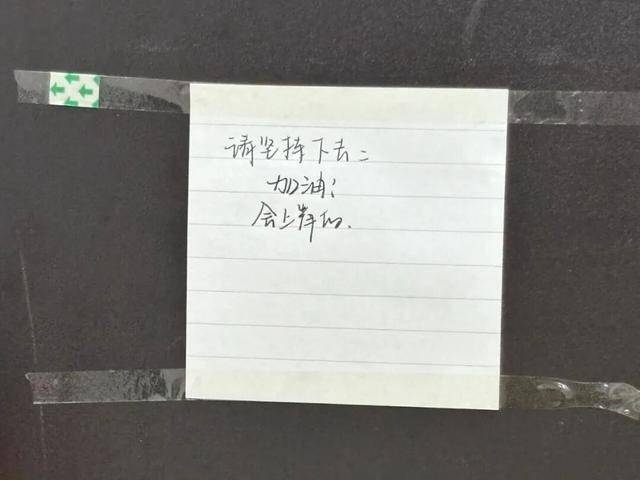 请坚持下去!
加油!
会上岸的.